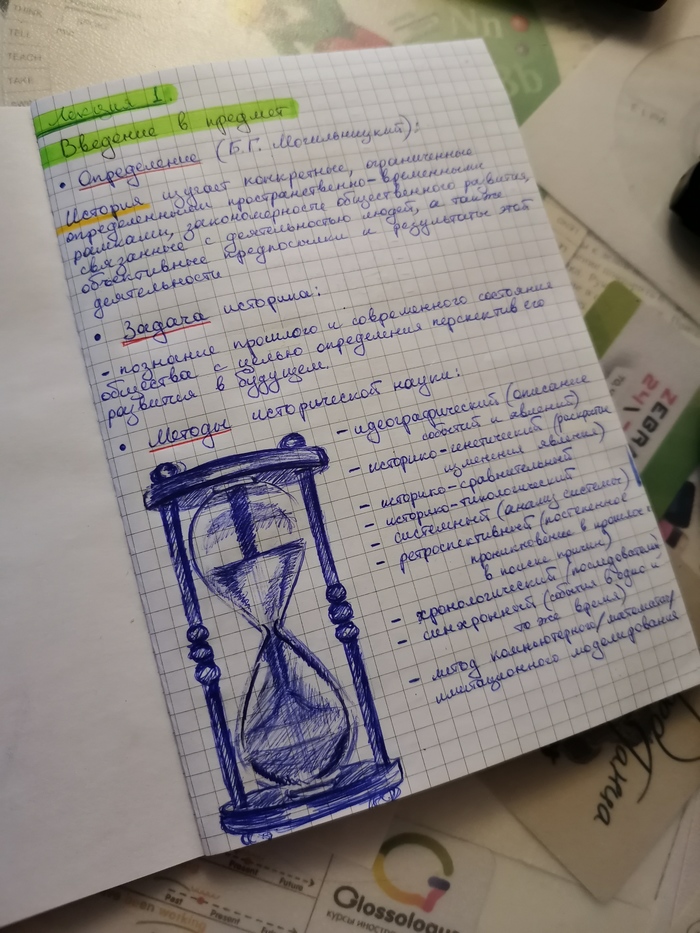 Лекция 1.
Введение в предмет
• Определение (Б.Г. Могильницкий):
История изучает конкретные, ограниченные
определёнными пространственно-временными
рамками, закономерности общественного развития,
связанные с деятельностью людей, а также
объективные предпосылки и результаты этой
деятельности
• Задача историка:
- познание прошлого и современного состояния
общества с целью определения перспектив его
развития в будущем.
• Методы исторической науки:
- идеографический (описание
событий и явлений)
- историко-генетический (раскрытие
изменения явления)
- историко-сравнительный
- историко-типологический
- системный (анализ системы)
- ретроспективный (постепенное
проникновение в прошлое с
в поиске причин)
- хронологический (последователь
- синхронный (события в одно и
то же время)
- метод компьютерного/математич/
имитационного моделирования
THINK
TELL
TEACH
TAKE
Nn
ZEBRA
24
Present
Future
Past
Present
Future
working
Glossologu
курсы иностр